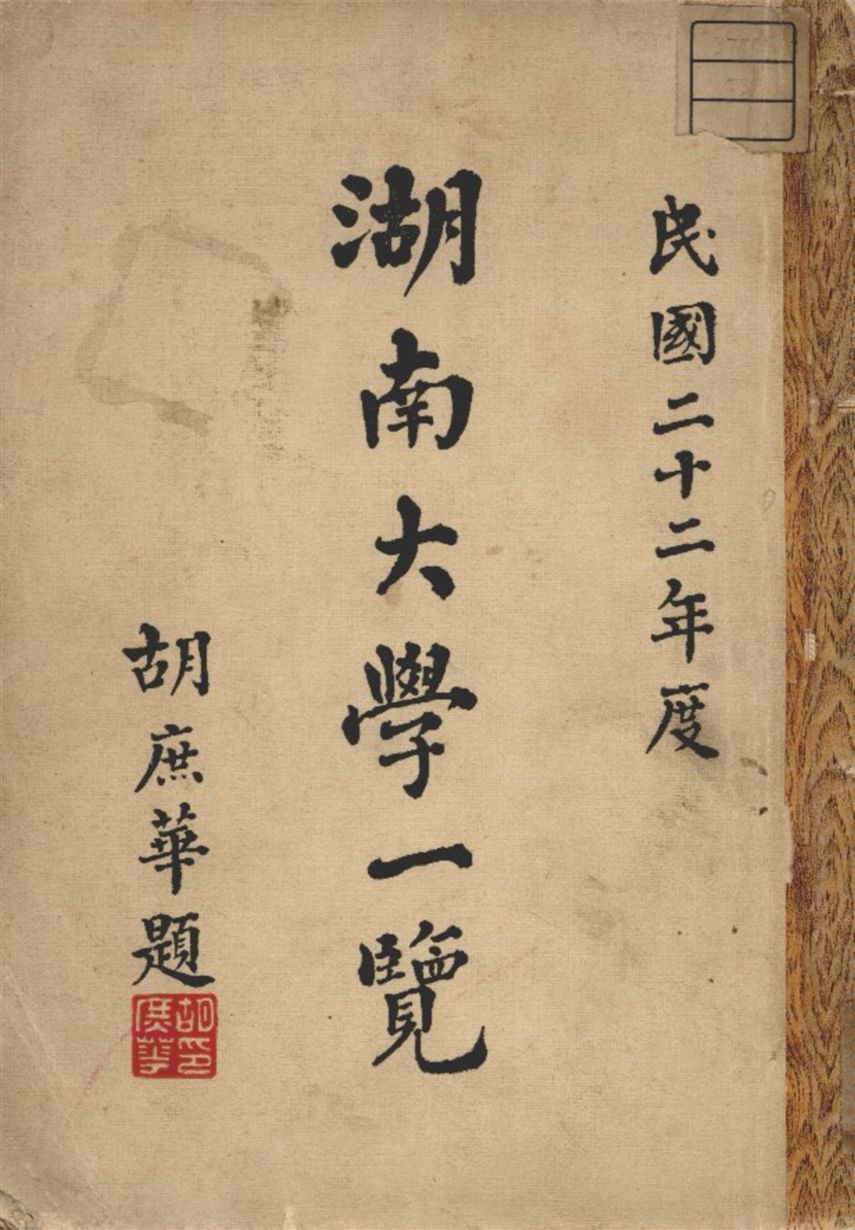 民國二十二年度
湖南大學一覽
胡庶華題
胡庶華印